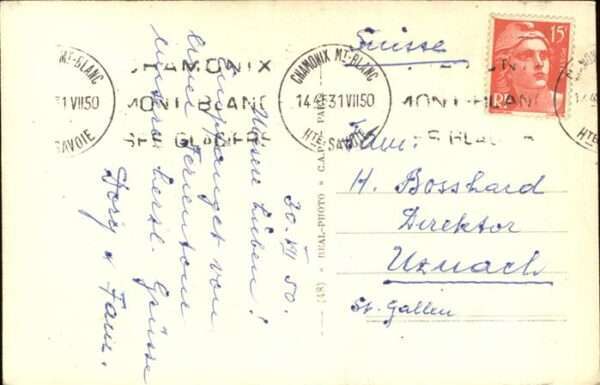 30. VII. 50.
Meine Lieben!
Empfanget von
einer Ferientour
unsere herzl. Grüsse
Dory & Fam.
(48) - REAL-PHOTO - C.A.P. PARIS
Suisse
Fam:
H. Bosshard
Direktor
Uznach
St. Gallen
CHAMONIX MT-BLANC
14 31 VII 50
HTE SAVOIE
CHAMONIX
MONT-BLANC
SES GLACIERS
MT-BLANC
31 VII 50
SAVOIE
MONT-BLANC
15F
RF